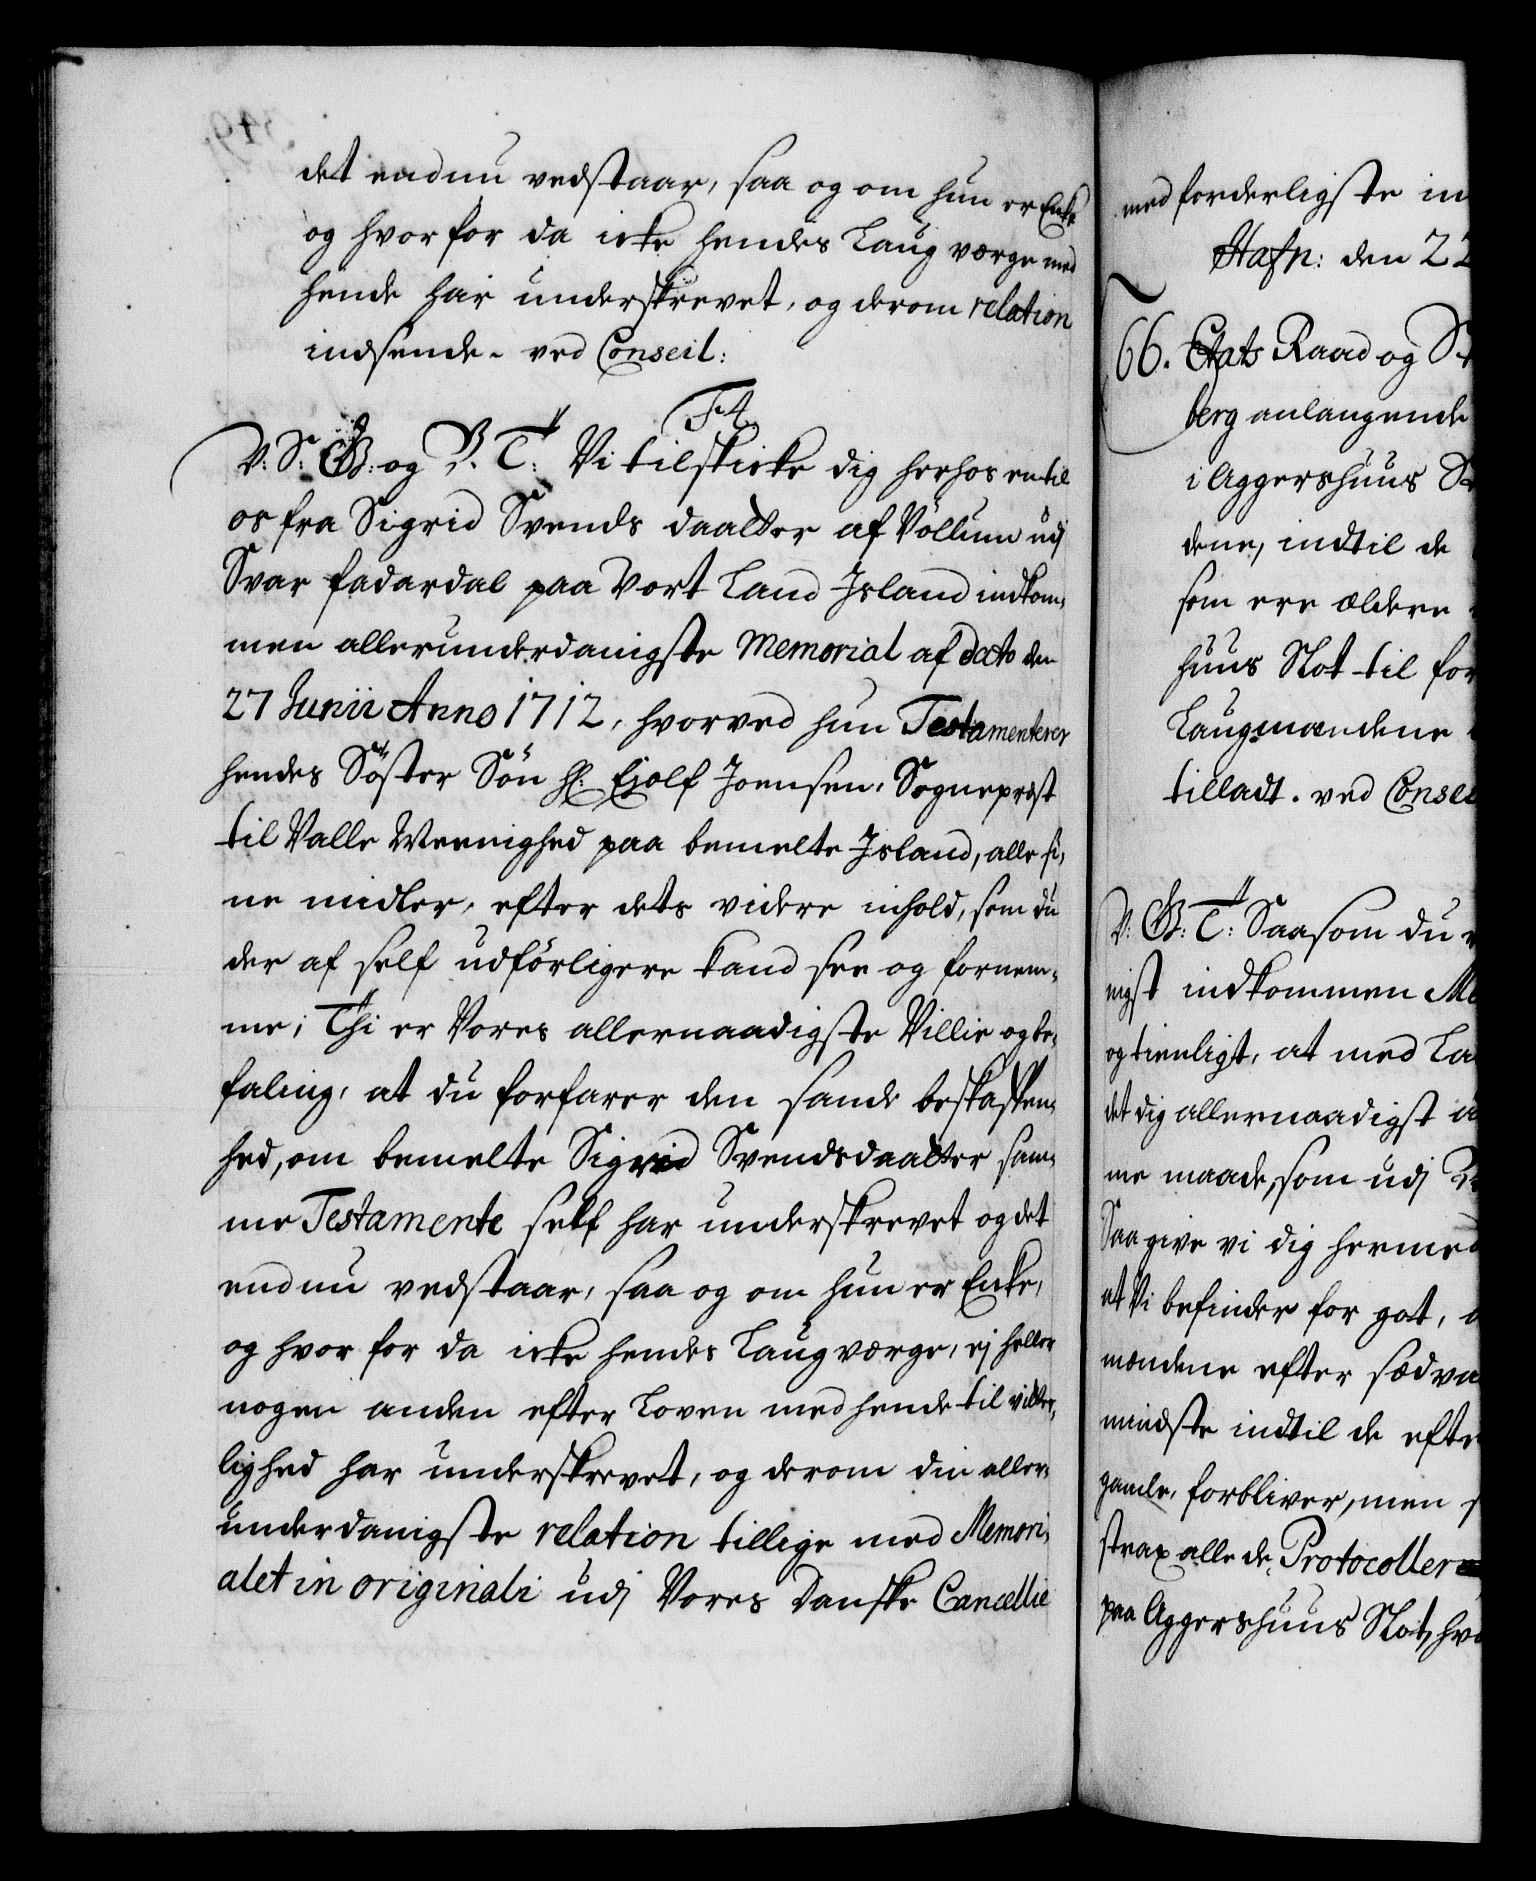 det endnu vedstaar, saa og om hun er Enke
og hvorfor da icke hendes Laug værge med
hende har underskrevet, og derom relation
indsende. ved Conseil:
F 4
V: S: G: og B. T: Vi tilskicke dig herhos en til
os fra Sigrid Svends daatter af Völlum udj
Svar fadardal paa Vort Land Island indkom-
men allerunderdanigste Memorial af dato den
27 Junii Anno 1712, hvorved hun Testamenterer
hendes Söster Sön H: Ejolf Joensen, Sognepræst
til Valle Meenighed paa bemelte Island, alle si-
ne midler, efter dets videre inhold, som du
der af self udförligere kand see og fornem-
me; Thi er Vores allernaadigste Villie og be-
faling, at du forfarer den sande beskaffen-
hed, om bemelte Sigrid Svendsdaatter sam-
me Testamente self har underskrevet og det
endnu vedstaar, saa og om hun er Enke,
og hvor for da icke hendes Laugværge, ej heller
nogen anden efter Loven med hende til vitter-
lighed har underskrevet, og derom din aller-
underdanigste relation tillige med Memori-
alet in originali udj Vores Danske Cancellie
med forderligste in
Hafn: den 22
66. Etats Raad og St
berg anlangende
i Aggershuus St
dene, indtil de
som ere ældere
huus Slot til for
Laugmændene
tilladt. ved Consei
V: G: T: Saasom du
nigst indkommen Me
og tienligt, at med La
det dig allernaadigst a
me maade, som udj
Saa give vi dig hermed
at Vi befinder for got, a
mændene efter sædva
mindste indtil de efte
gamle, forbliver, men s
strax alle de Protocoller
paa Aggershuus Slot, hvo